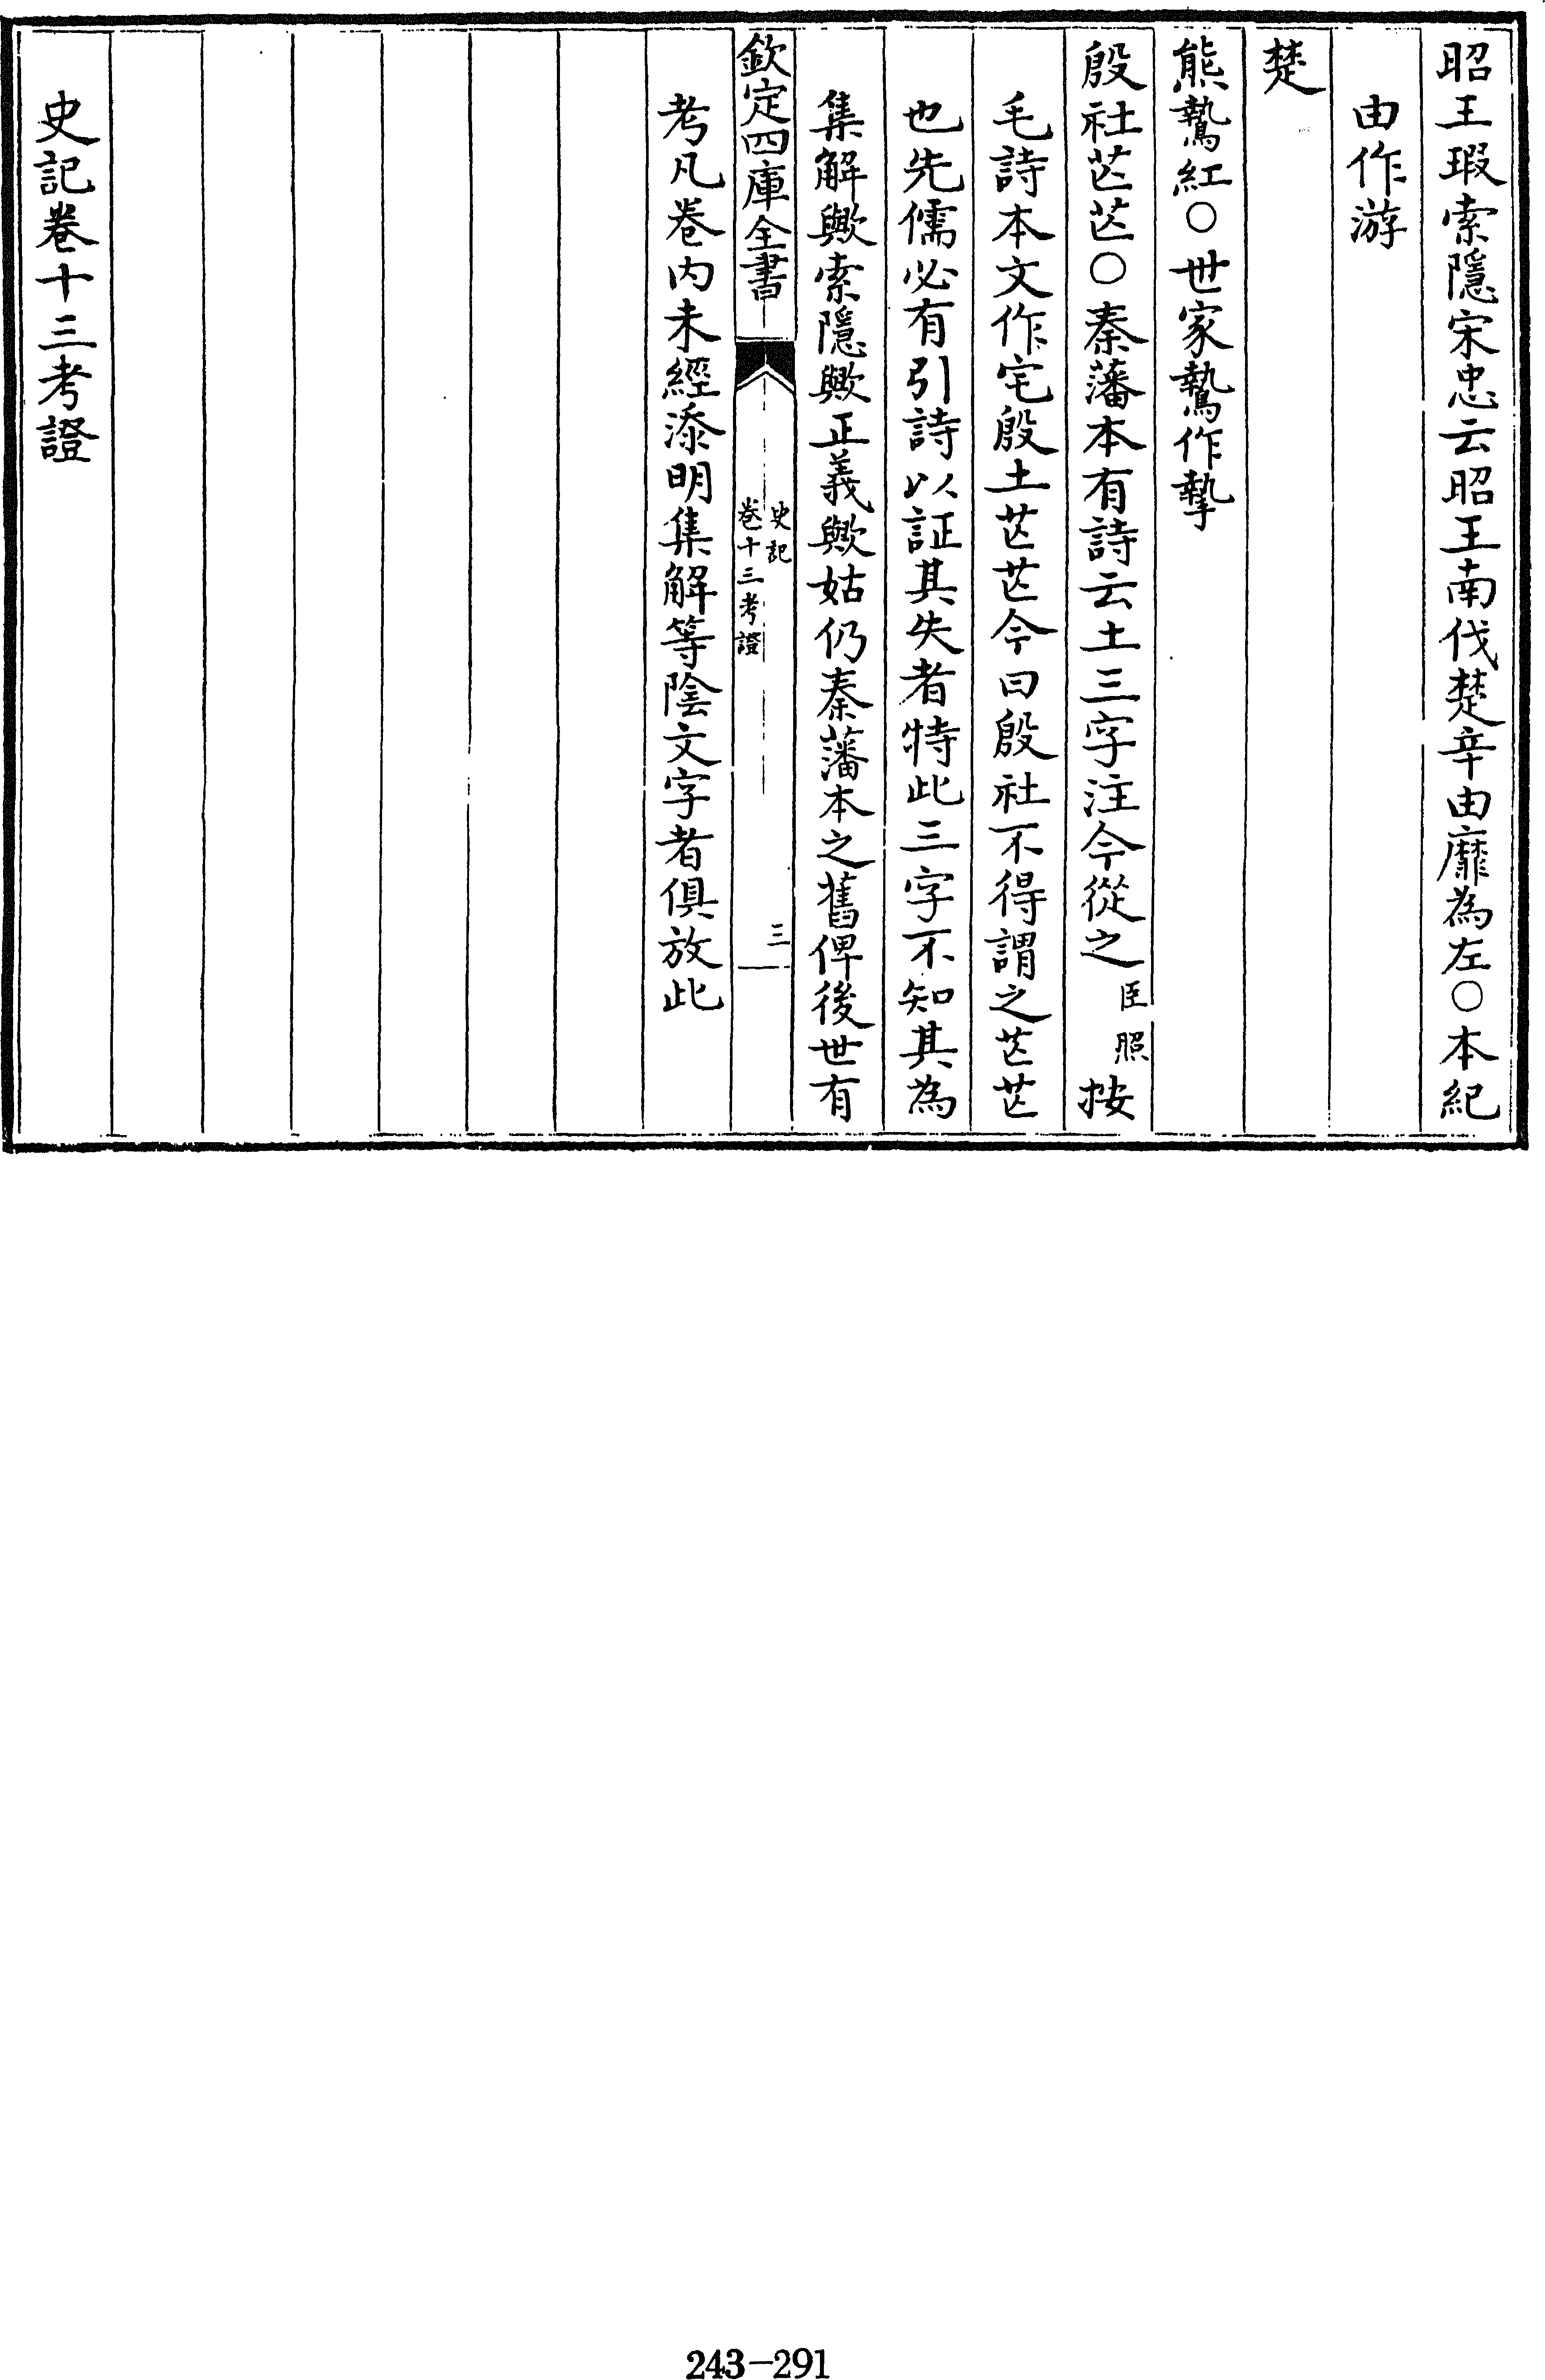 昭王瑕索隱宋忠云昭王南伐楚辛由靡為左○本紀
由作游
楚
熊鷙紅○世家鷙作摯
殷社芒芒○秦藩本有詩云土三字注今從之臣照按
毛詩本文作宅殷土芒芒今曰殷社不得謂之芒芒
也先儒必有引詩以証其失者特此三字不知其為
集解歟索隱歟正義歟姑仍秦藩本之舊俾後世有
欽定四庫全書
史記
卷十三考證
三
考凡卷内未經添明集解等陰文字者俱放此
史記卷十三考證
243-291